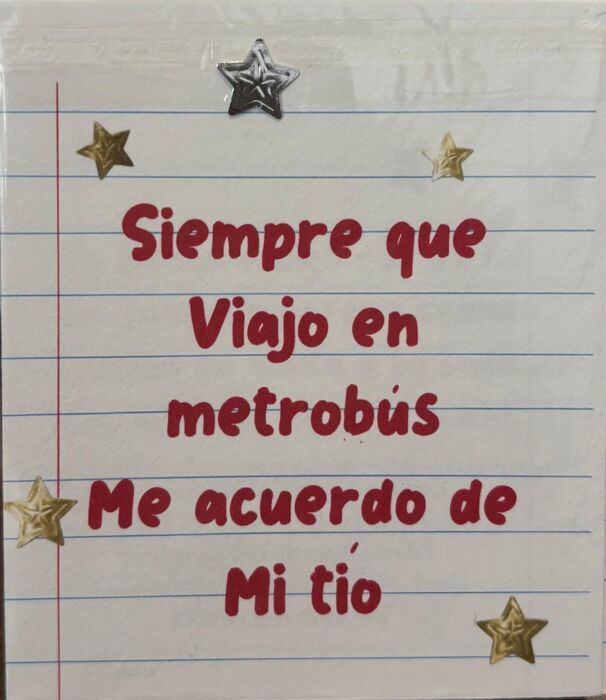 Siempre que
Viajo en
metrobús
Me acuerdo de
Mi tío